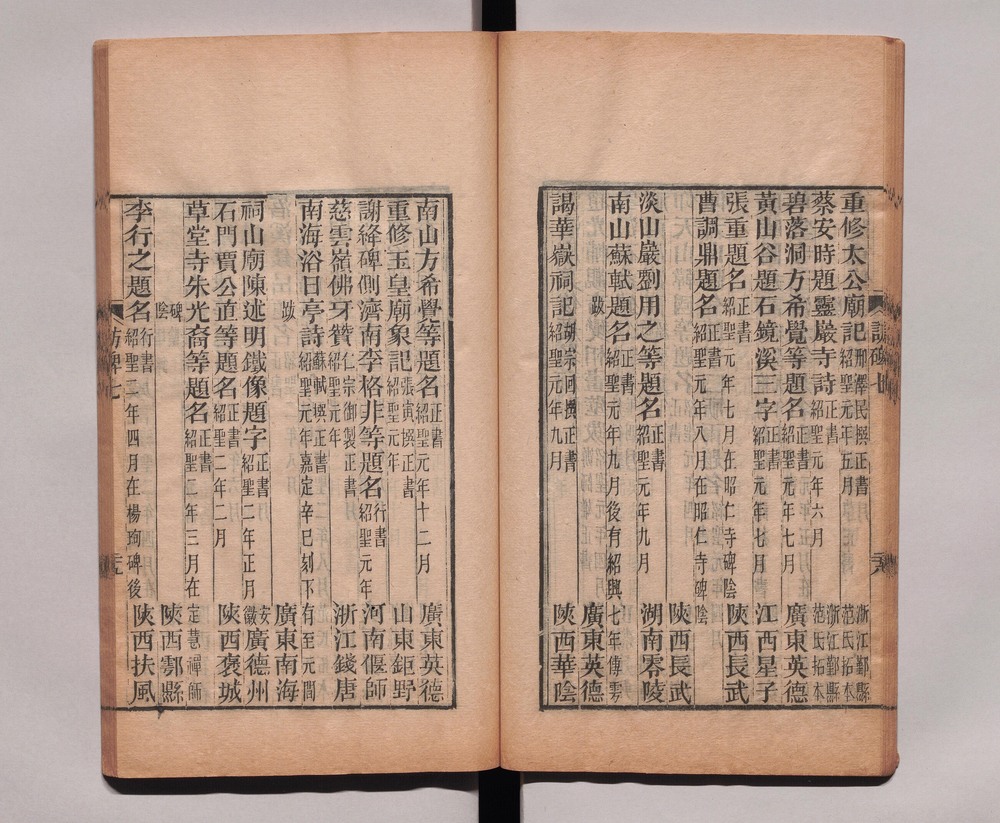 重修太公廟記 邢澤民撰正書 紹聖元年五月 浙江鄞縣范氏拓本
蔡安時題靈巖寺詩 正書 紹聖元年六月 浙江鄞縣范氏拓本
碧落洞方希覺等題名 正書 紹聖元年七月 廣東英德
黃山谷題石鏡溪三字 正書 紹聖元年七月 江西星子
張重題名 正書 紹聖元年七月在昭仁寺碑陰 陝西長武
曹調鼎題名 正書 紹聖元年八月在昭仁寺碑陰
陝西長武
淡山巖劉用之等題名 正書 紹聖元年九月 湖南零陵
南山蘇軾題名 正書 紹聖元年九月後有紹興七年傅雱
跋 廣東英德
謁華嶽祠記 胡宗回撰正書 紹聖元年九月 陝西華陰
訪碑七
南山方希覺等題名 正書 紹聖元年十二月 廣東英德
重修玉皇廟象記 張寅撰正書 紹聖元年 山東鉅野
謝絳碑側濟南李格非等題名 行書 紹聖元年 河南偃師
慈雲嶺佛牙贊 仁宗御製正書 紹聖元年 浙江錢唐
南海浴日亭詩 蘇軾撰正書 紹聖元年嘉定辛巳刻下有至元間
跋 廣東南海
祠山廟陳述明鐵像題字 正書 紹聖二年正月 安徽廣德州
石門賈公直等題名 正書 紹聖二年二月 陝西褒城
草堂寺朱光裔等題名 正書 紹聖二年三月在定慧禪師
碑陰 陝西鄠縣
李行之題名 行書 紹聖二年四月在楊珣碑後 陝西扶風
訪碑七